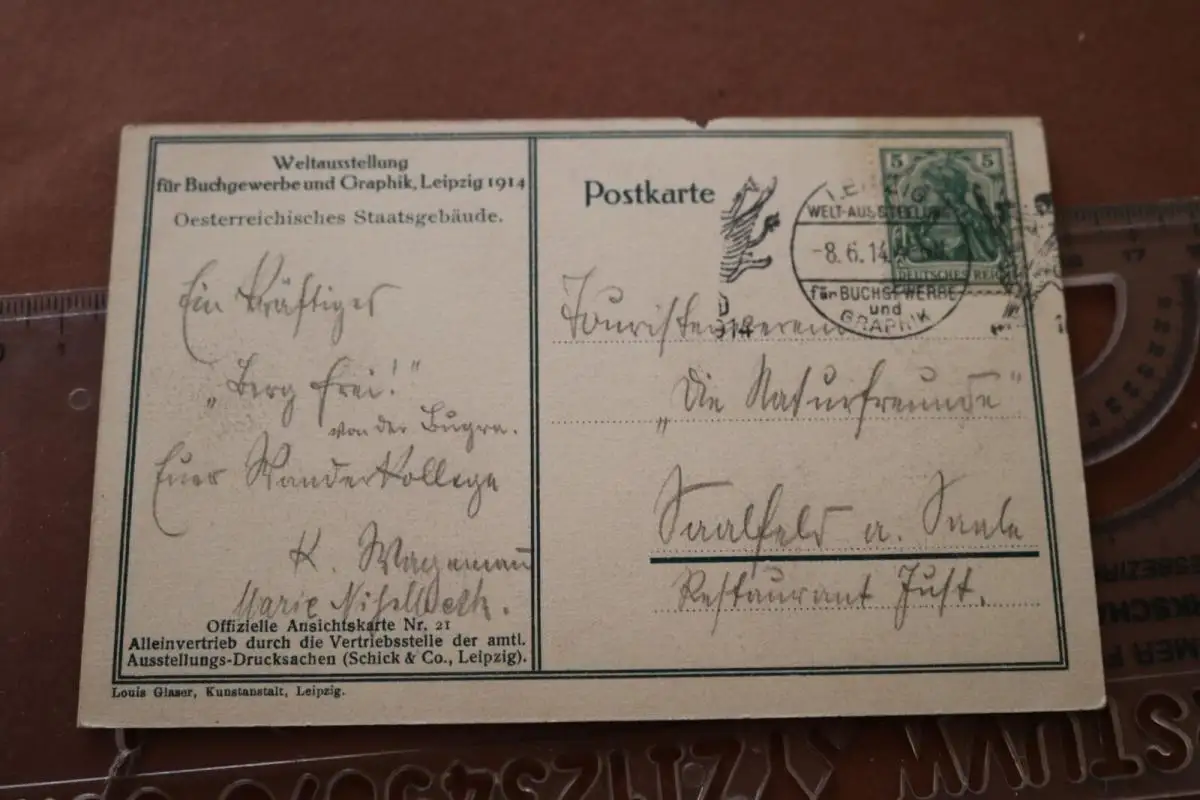 Weltausstellung
für Buchgewerbe und Graphik, Leipzig 1914
Oesterreichisches Staatsgebäude.
Ein kräftiges
„Berg frei!"
von der Bugra.
Euer Wanderkollege
K. Wagemann
Marie
Offizielle Ansichtskarte Nr. 21
Alleinvertrieb durch die Vertriebsstelle der amtl.
Ausstellungs-Drucksachen (Schick & Co., Leipzig).
Louis Glaser, Kunstanstalt, Leipzig.
Postkarte
5 5
DEUTSCHES REICH
LEIPZIG
WELT-AUSSTELLUNG
-8.6.14
für BUCHGEWERBE
und
GRAPHIK
Touristenverein
„Die Naturfreunde"
Saalfeld a. Saale
Restaurant Just.